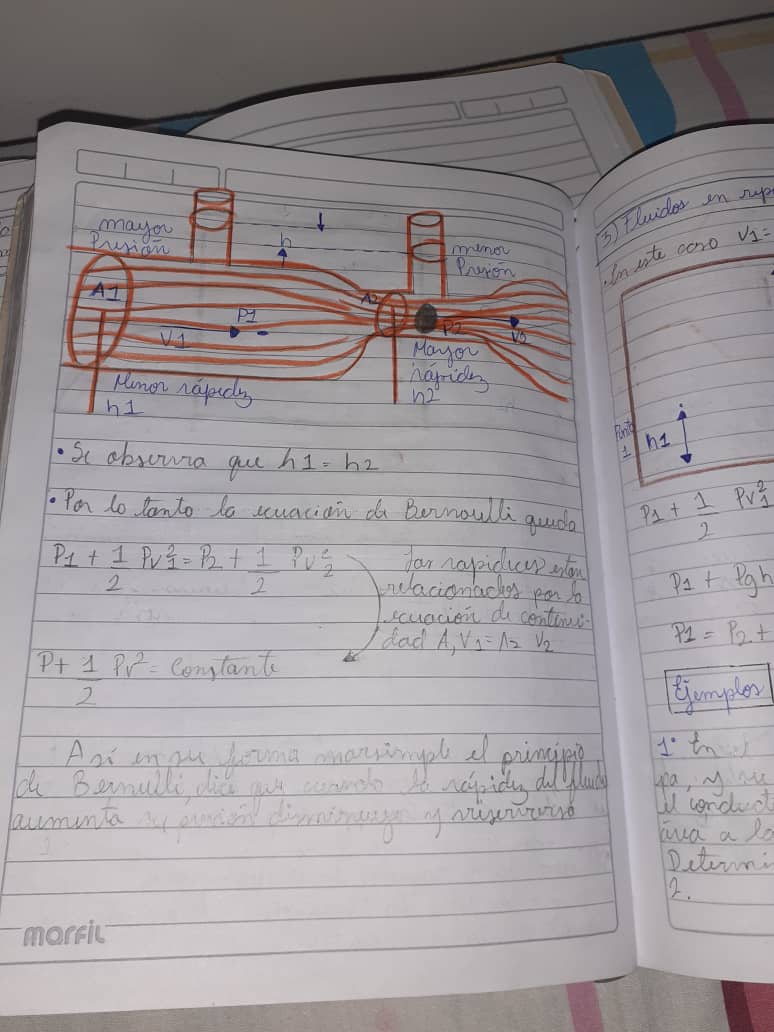 mayor
Presión
h
menor
Presión
A1
A2
P1
P2
V1
V2
Mayor
rápidez
h2
Menor rápidez
h1
• Se observra que h1 = h2
• Por lo tanto la ecuación de Bernoulli queda
P1 + 1/2 Pv²1 = P2 + 1/2 Pv²2
las rapideces estan
relacionados por la
ecuación de continui-
dad A, V1 = A2 V2
P + 1/2 Pv² = Constante
Así en su forma marsimple el principio
de Bernulli, dice que cuando la rápidez del fluido
aumenta su presión disminuye y viserverso
marfil
3) Fluidos en rep
. En este caso V1 =
Punto
1
h1
P1 + 1/2 Pv²1
P1 + Pgh
P1 = P2 +
Ejemplos
1° En el
pa, y su
el conduct
área a la
Determi
2.